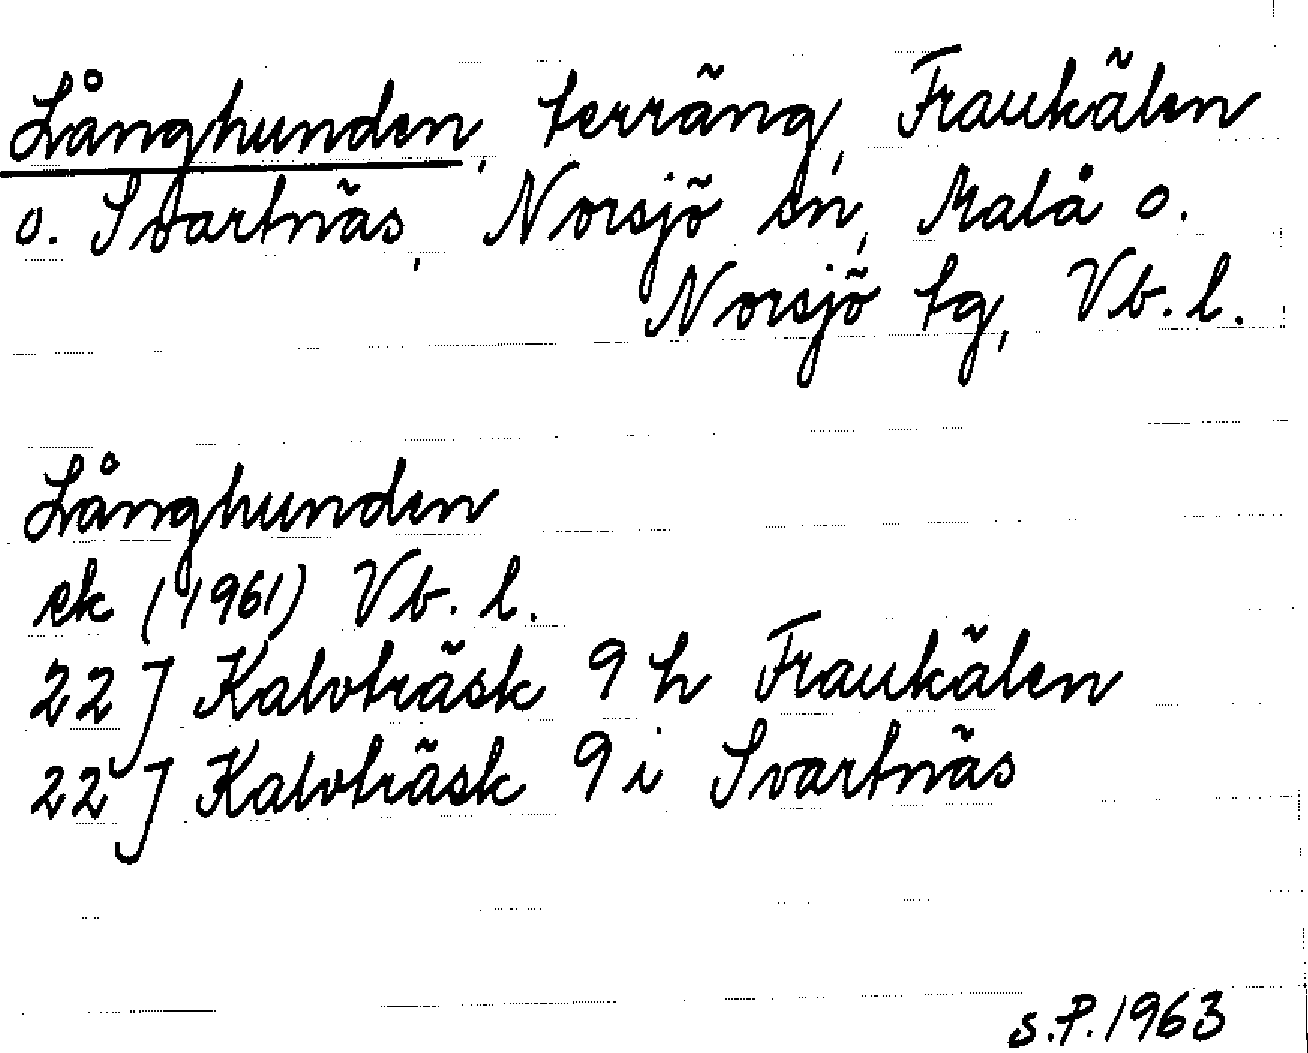 Långhunden, terräng, Fraukälen
o. Svartnäs, Norsjö sn, Malå o.
Norsjö tg, Vb. l.
Långhunden
ek (1961) Vb. l.
22 J Kalvträsk 9 h Fraukälen
22 J Kalvträsk 9 i Svartnäs
S.P. 1963